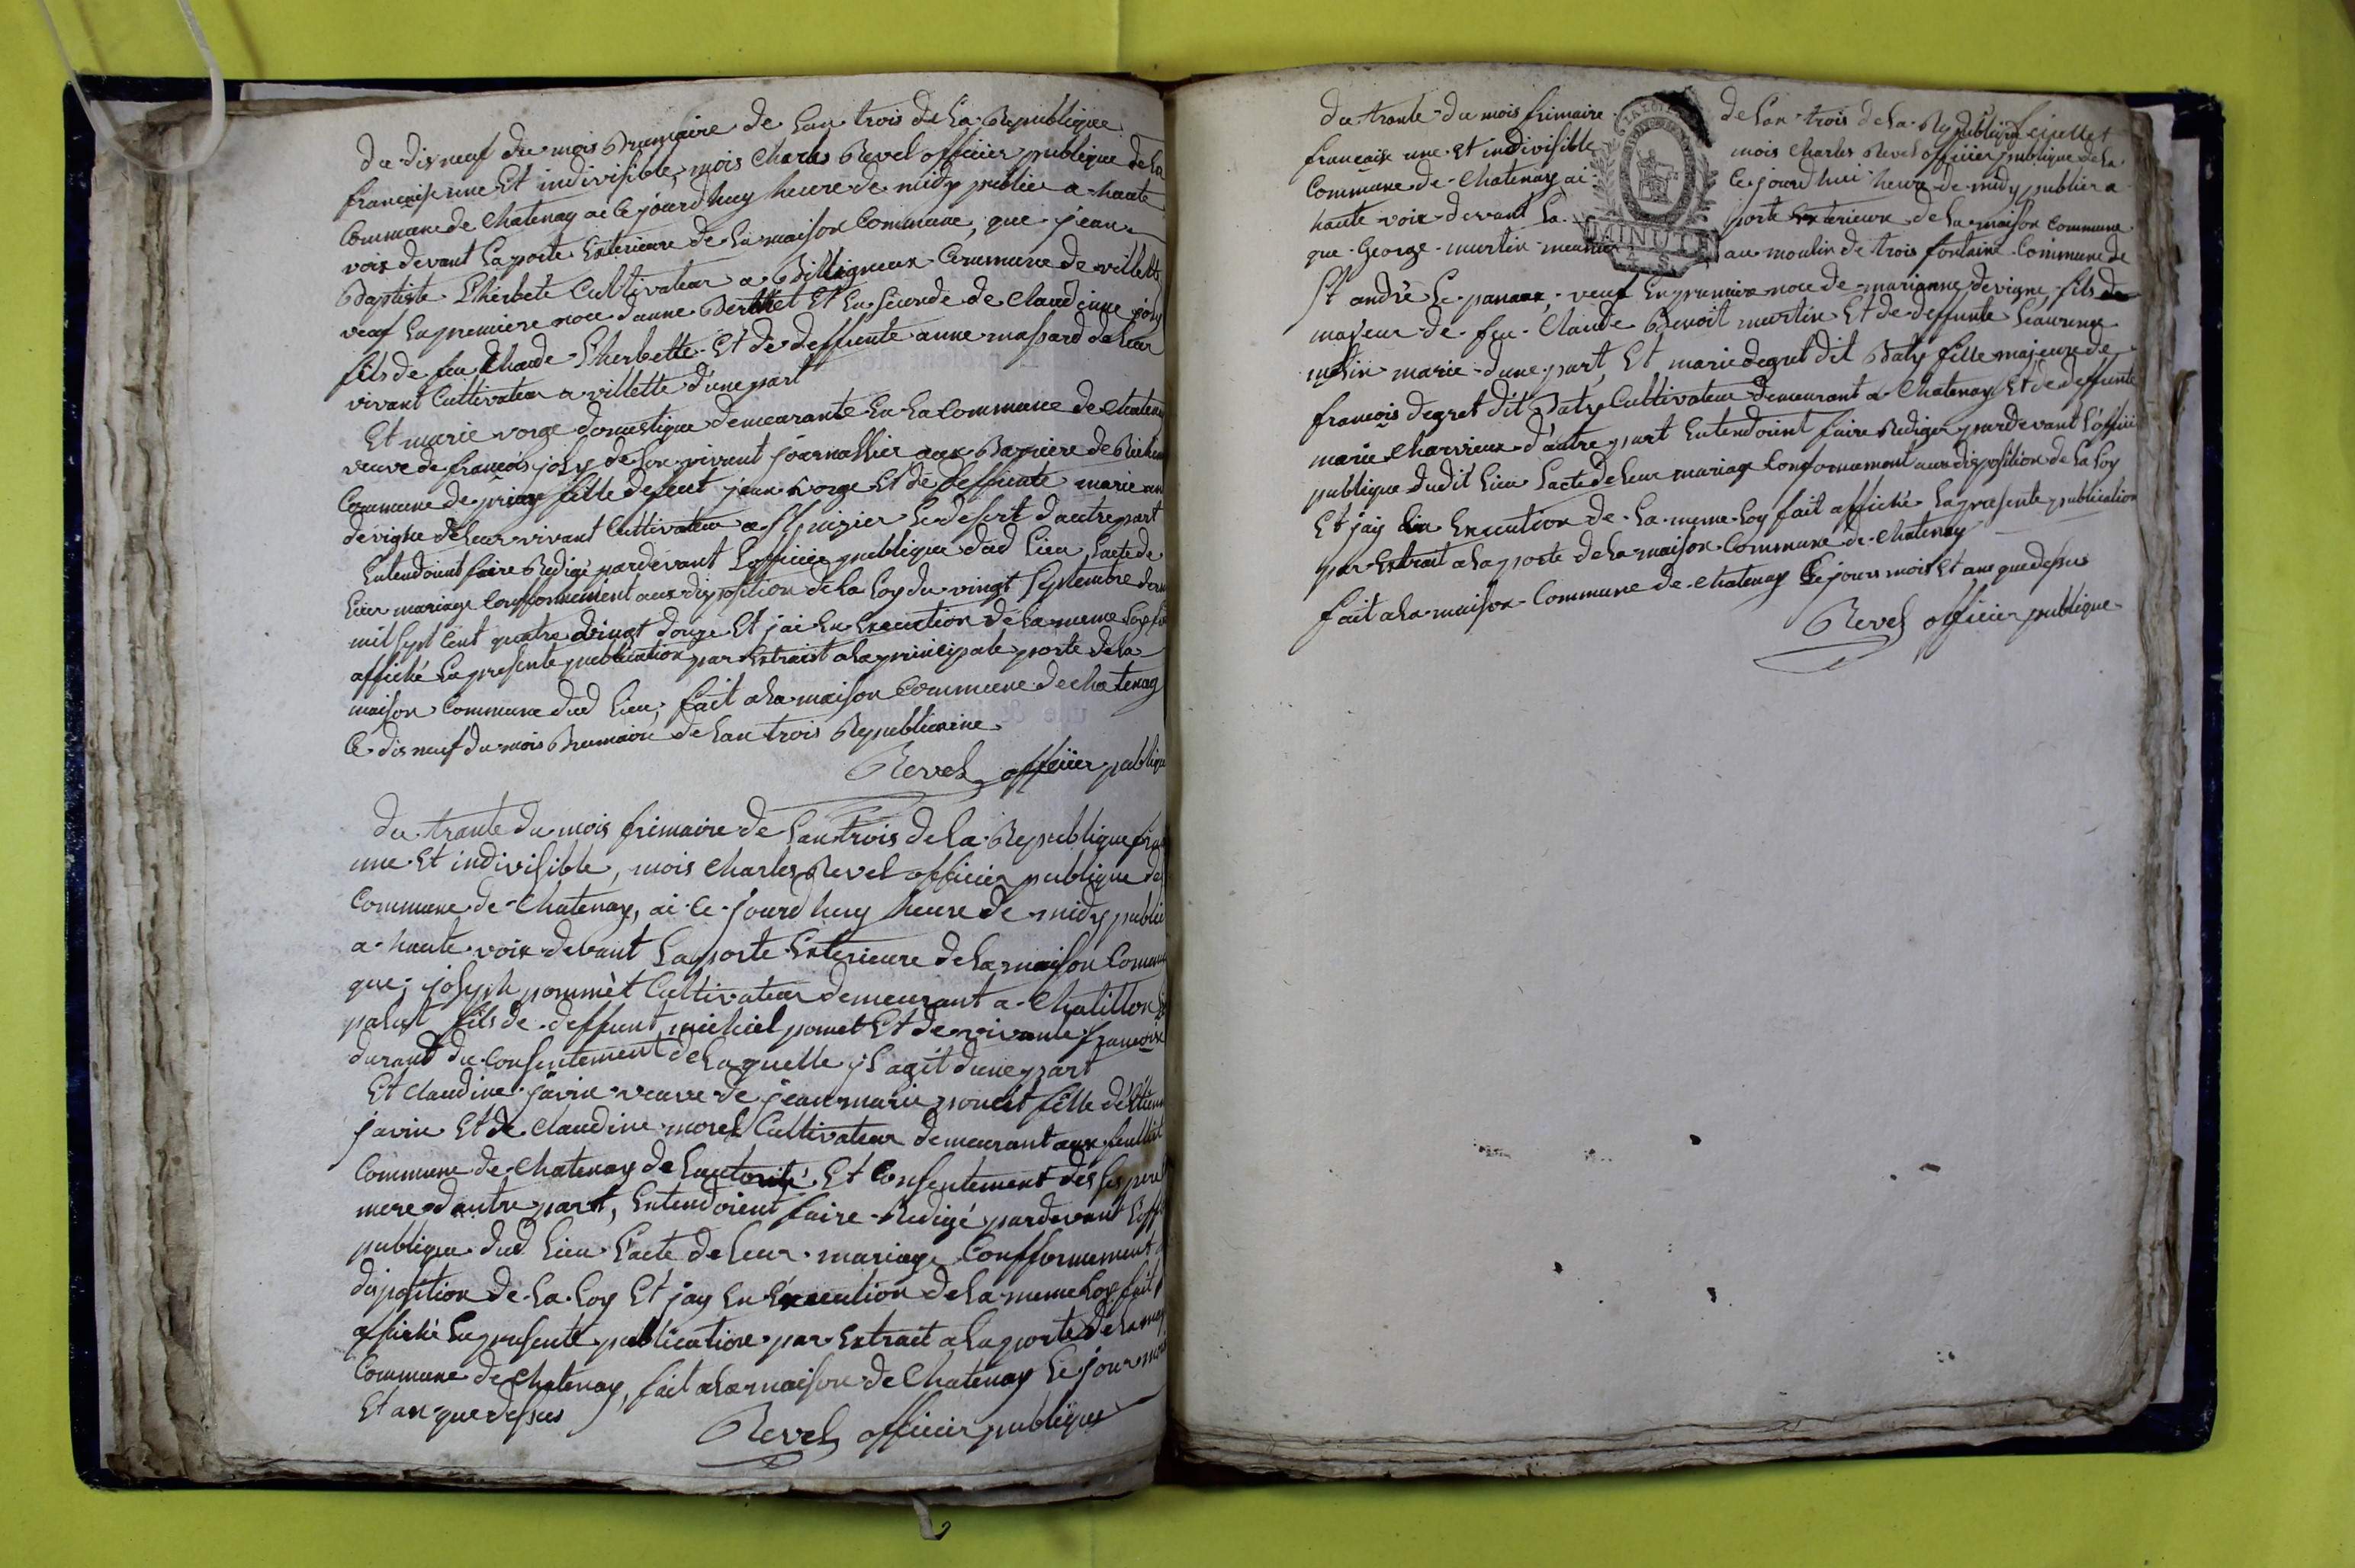 du disneuf du mois Brumaire de Lan trois de La Republique
francaise une Et indivisible, mois Charles Revel officier publique de La
Commune de Chatenay ai Ce jourd huy heure de midy publier a haute
voix devant La porte Exterieure de La maison Commune, que jean
Baptiste L'herbete Cultivateur a Billigneux Commune de villette
veuf La premiere noce danne Berthet Et La seconde de Claudinne joly
fils de feu Claude L'herbette Et de deffunte anne massard de leur
vivant Cultivateur a villette d'une part
Et marie vorge domestique demeurante En La Commune de Chatenay
veuve de francois joly de son vivant journallier aux Baraire de
Commune de priay fille de feut jean vorge Et de deffunte marie
devigne de Leur vivant Cultivateur a St nizier Le desert d'autre part
Entendoient faire Redigé pardevant L'officier publique dud Lieu Lacte de
Leur mariage Confformement aux disposition de La Loy du vingt Septembre
mil sept Cent quatre vingt douze Et jai En Execution de La meme Loy
affiché La presente publication par Extrait a La principale porte de La
maison Commune dud Lieu, fait a La maison Commune de chatenay
Ce disneuf du mois Brumaire de Lan trois Republicaine
Revel officier publique
du trante du mois frimaire de Lan trois de La Republique
une Et indivisible, mois Charles Revel officier publique de
Commune de Chatenay, ai Ce jourd huy heure de midy publié
a haute voix devant La porte Exterieure de La maison Commune
que, joseph pommèt Cultivateur demeurant a Chatillon
palut fils de deffunt michiel pomet Et de vivante francoise
durand du Consentement de Laquelle il agit d'une part
Et Claudine javin veuve de jean marie poncet fille de
javin Et de Claudine morel Cultivateur demeurant aux
Commune de Chatenay de Lautorité Et Consentement des ses pere
mere d'autre part, Entendoient faire Redigé pardevant
publique dud Lieu Lacte de Leur mariage Confformement
disposition de La Loy Et jay En Execution de La meme Loy fait
affiché La presente publication par Extrait a La porte de La
Commune de Chatenay, fait a La maison de Chatenay Le jour mois
Et an que dessus
Revel officier publique
du trante du mois frimaire de Lan trois de La Republique
francaise une Et indivisible mois Charles Revel officier publique de La
Commune de Chatenay ai Ce jourd hui heure de midy publier a
haute voix devant La porte Exterieure de La maison Commune
que George martin meunier au moulin de trois fontaine Commune de
St andré Le panoux, veuf En premiere noce de marianne devigne fils
majeur de feu Claude Benoit martin Et de deffunte Leaurence
marie d'une part, Et marie degret dit Baty fille majeure de
francois degret dit Baty Cultivateur demeurant a Chatenay Et de deffunte
marie Charvieux d'autre part Entendoient faire Rediger pardevant L'officier
publique dudit Lieu Lacte de Leur mariage Conformement aux disposition de La Loy
Et jay En Execution de La meme Loy fait affiché La presente publication
par Extrait a La porte de La maison Commune de Chatenay
fait a La maison Commune de Chatenay Le jours mois Et ans que dessus
Revel officier publique
MINUTE